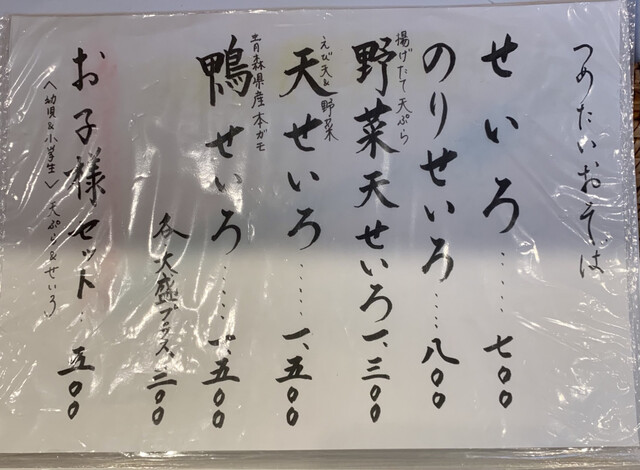 つめたいおそば
せいろ……七〇〇
のりせいろ……八〇〇
揚げたて天ぷら
野菜天せいろ一、三〇〇
えび天&野菜
天せいろ……一、五〇〇
青森県産本ガモ
鴨せいろ……一、五〇〇
各大盛プラス、二〇〇
お子様セット…五〇〇
〈幼児&小学生〉天ぷら&せいろ〉